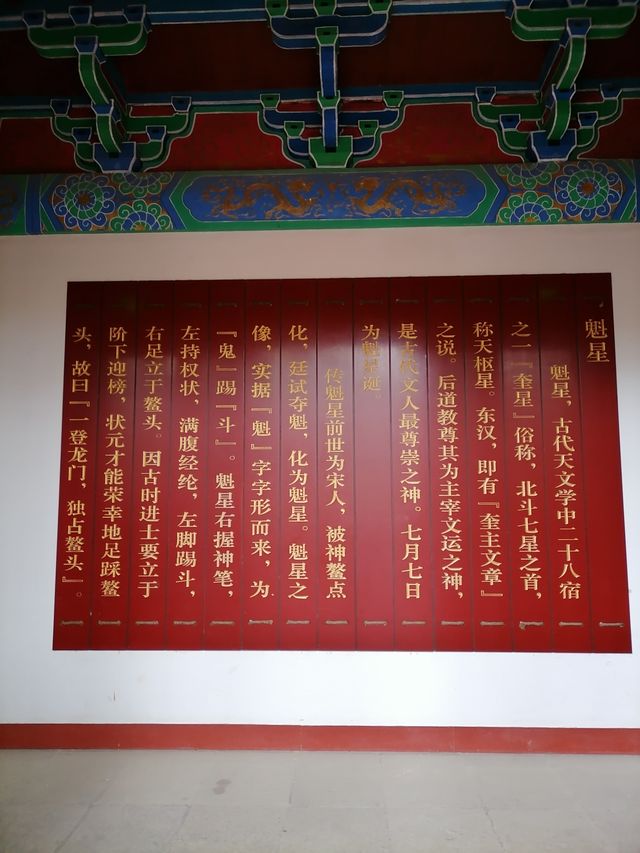 魁星
魁星，古代天文学中二十八宿
之一『奎星』俗称，北斗七星之首，
称天枢星。东汉，即有『奎主文章』
之说。后道教尊其为主宰文运之神，
是古代文人最尊崇之神。七月七日
为魁星诞。
传魁星前世为宋人，被神鳌点
化，廷试夺魁，化为魁星。魁星之
像，实据『魁』字字形而来，为
『鬼』踢『斗』。魁星右握神笔，
左持权状，满腹经纶，左脚踢斗，
右足立于鳌头。因古时进士要立于
阶下迎榜，状元才能荣幸地足踩鳌
头，故曰『一登龙门，独占鳌头』。